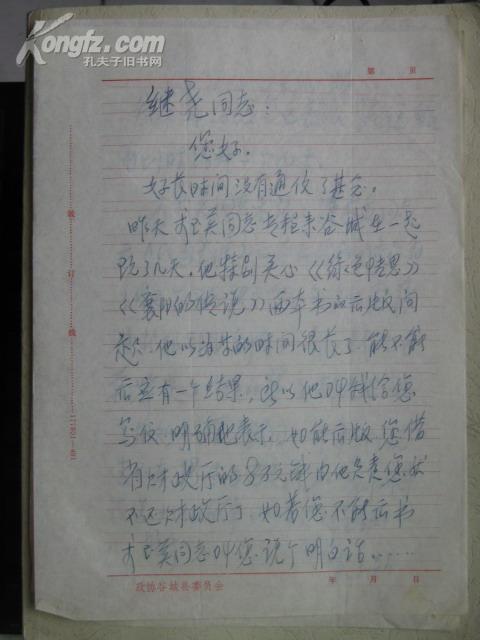 Kongfz.com
孔夫子旧书网
第 页
继尧同志：
您好。
好长时间没有通信了甚念。
昨天 同志专程来谷城在一起
玩了几天，他特别关心《 》
《襄阳的传说》两本书的出版问
题。他以为 的时间很长了，能不能
后 有一个结果，所以他叫我给您
写信，明确地表示，如能出版，您借
省财政厅的8万元钱由他负责您 
不还财政厅了，如若您不能出书
 同志叫您说个明白话……
装 订 线
政协谷城县委员会
年 月 日